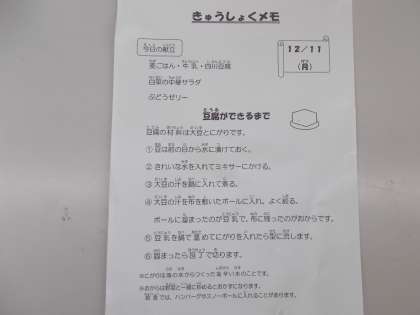 きゅうしょくメモ
今日の献立
12/11
(月)
麦ごはん・牛乳・四川豆腐
白菜の中華サラダ
ぶどうゼリー
豆腐ができるまで
豆腐の材料は大豆とにがりです。
①豆は前の日から水に漬けておく。
②きれいな水を入れてミキサーにかける。
③大豆の汁を鍋に入れて煮る。
④大豆の汁を布を敷いたボールに入れ、よく絞る。
ボールに溜まったのが豆乳で、布に残ったのがおからです。
⑤豆乳を鍋で温めてにがりを入れたら型に流します。
⑥固まったら包丁で切ります。
※にがりは海の水からつくった苦い水のことです。
※おからは野菜と一緒に炒めるとおかずになります。
給食では、ハンバーグやスノーボールに入れることがあります。